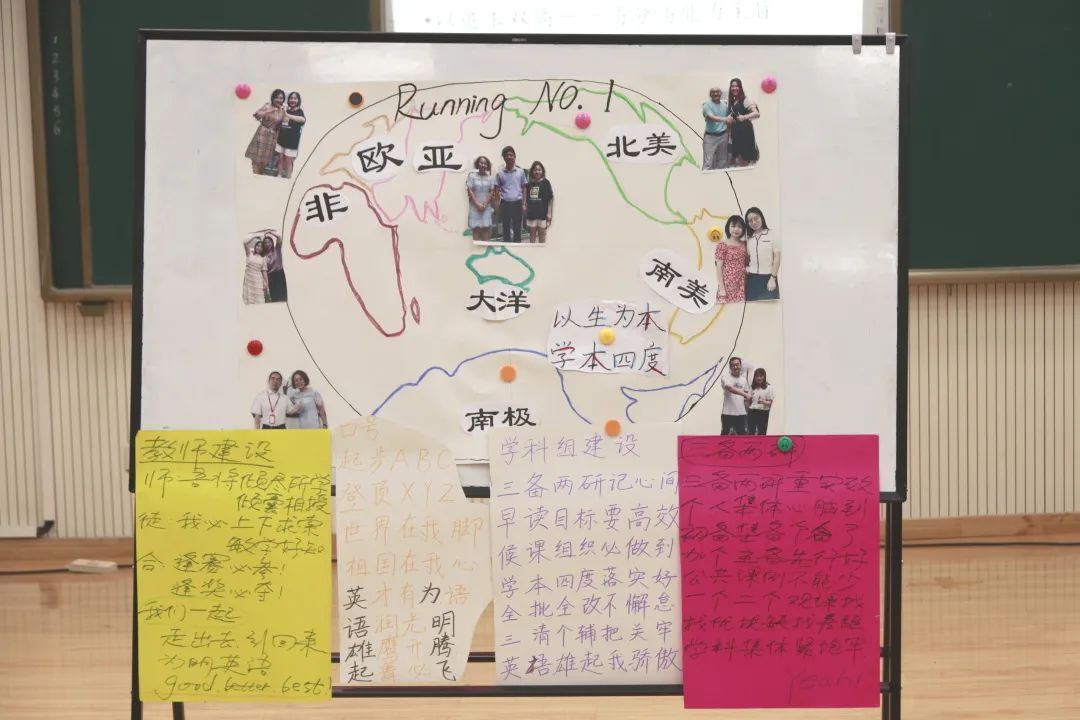 Running NO. 1
欧 亚
北美
非
南美
大洋
以生为本
学本四度
南极
教师建设
师 吾将倾尽所学
倾囊相授
徒 我必上下求索
敏学好知
合 逢赛必参!
逢奖必夺!
我们一起
走出去,引回来
为明英语
good. better. best.
口号
起步ABC
登顶XYZ
世界在我脚
祖国在我心
英 才有为 语
语 润光明
雄 鹰 腾
起 必飞
学科组建设
三备两研记心间
早读目标要高效
候课组织必做到
学本四度落实好
全批全改不懈怠
三清个辅把关牢
英语雄起我骄傲
三备两研
三备两研重实效
个人集体心脑到
初备 备个备了
加个 备先行好
公共课例不能少
一个二个观课找
找优找缺找
学科集体紧抱牢
Yeah!